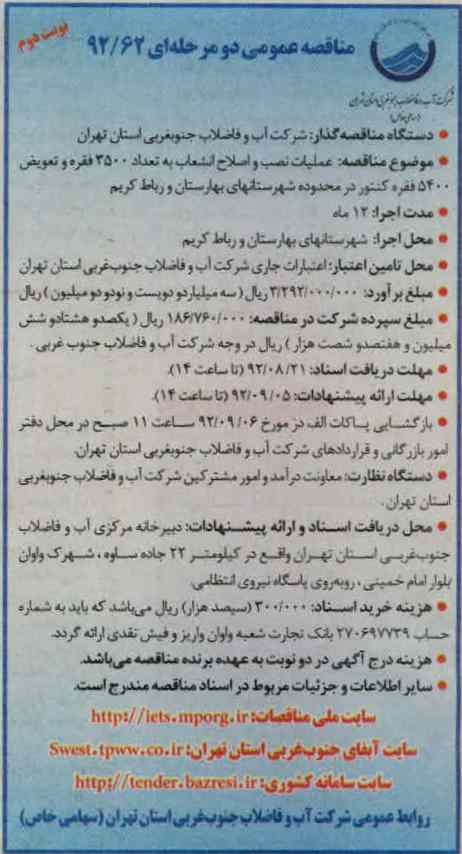 نوبت دوم
مناقصه عمومی دو مرحله‌ای ۹۲/۶۲
شرکت آب و فاضلاب جنوبغربی استان تهران
(سهامی خاص)
● دستگاه مناقصه‌گذار: شرکت آب و فاضلاب جنوبغربی استان تهران
● موضوع مناقصه: عملیات نصب و اصلاح انشعاب به تعداد ۳۵۰۰ فقره و تعویض
۵۴۰۰ فقره کنتور در محدوده شهرستانهای بهارستان و رباط کریم
● مدت اجرا: ۱۲ ماه
● محل اجرا: شهرستانهای بهارستان و رباط کریم
● محل تامین اعتبار: اعتبارات جاری شرکت آب و فاضلاب جنوب‌غربی استان تهران
● مبلغ برآورد: ۳/۲۹۲/۰۰۰/۰۰۰ ریال ( سه میلیارد و دویست و نود و دو میلیون ) ریال
● مبلغ سپرده شرکت در مناقصه: ۱۸۶/۷۶۰/۰۰۰ ریال ( یکصدو هشتادو شش
میلیون و هفتصدو شصت هزار ) ریال در وجه شرکت آب و فاضلاب جنوب غربی .
● مهلت دریافت اسناد: ۹۲/۰۸/۲۱ (تا ساعت ۱۴).
● مهلت ارائه پیشنهادات: ۹۲/۰۹/۰۵ (تا ساعت ۱۴).
● بازگشایی پاکات الف در مورخ ۹۲/۰۹/۰۶ ساعت ۱۱ صبح در محل دفتر
امور بازرگانی و قراردادهای شرکت آب و فاضلاب جنوبغربی استان تهران.
● دستگاه نظارت: معاونت درآمد و امور مشترکین شرکت آب و فاضلاب جنوبغربی
استان تهران .
● محل دریافت اسناد و ارائه پیشنهادات: دبیرخانه مرکزی آب و فاضلاب
جنوب‌غربی استان تهران واقع در کیلومتر ۲۲ جاده ساوه ، شهرک واوان
بلوار امام خمینی ، روبه‌روی پاسگاه نیروی انتظامی.
● هزینه خرید اسناد: ۳۰۰/۰۰۰ (سیصد هزار) ریال می‌باشد که باید به شماره
حساب ۲۷۰۶۹۷۷۳۹ بانک تجارت شعبه واوان واریز و فیش نقدی ارائه گردد.
● هزینه درج آگهی در دو نوبت به عهده برنده مناقصه می‌باشد.
● سایر اطلاعات و جزئیات مربوط در اسناد مناقصه مندرج است.
سایت ملی مناقصات: http://iets.mporg.ir
سایت آبفای جنوب‌غربی استان تهران: Swest.tpww.co.ir
سایت سامانه کشوری: http://tender.bazresi.ir
روابط عمومی شرکت آب و فاضلاب جنوب‌غربی استان تهران (سهامی خاص)